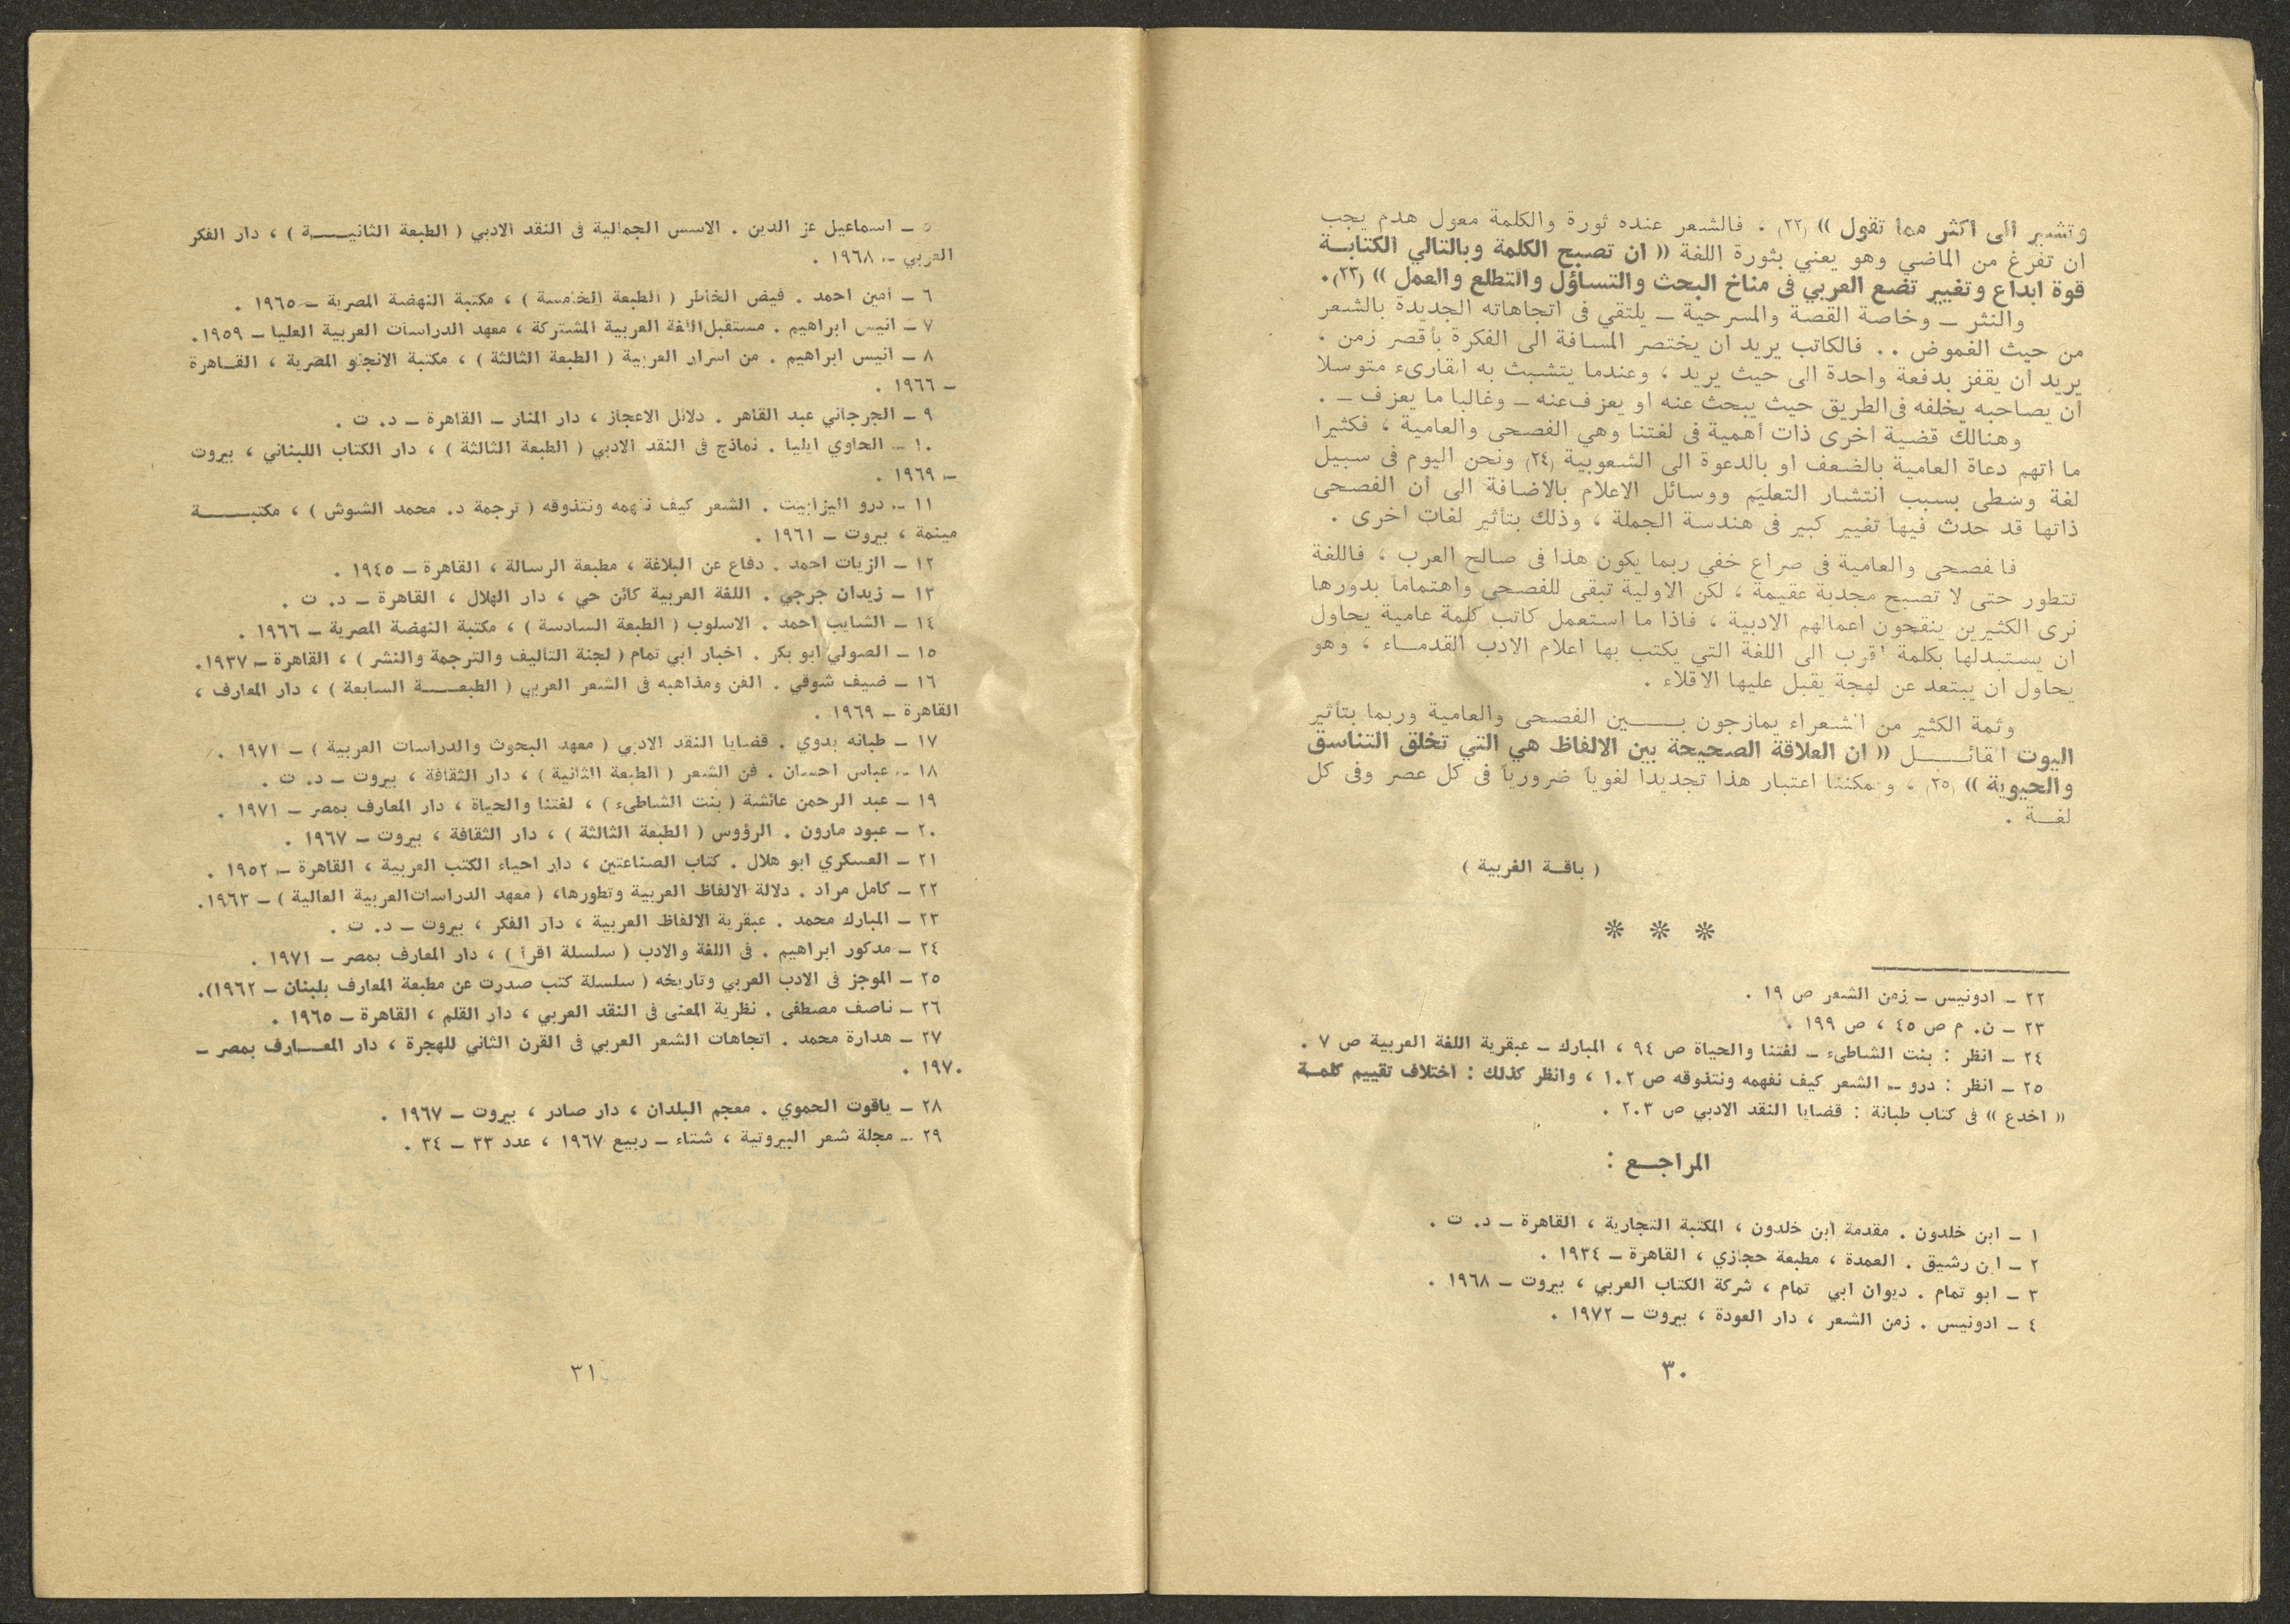 وتشير الى أكثر مما تقول » (٢٢) . فالشعر عنده ثورة والكلمة معول هدم يجب
ان تفرغ من الماضي وهو يعني بثورة اللغة « ان تصبح الكلمة وبالتالي الكتابــة
قوة ابداع وتغيير تضع العربي فى مناخ البحث والتساؤل والتطلع والعمل » (٢٣).
والنثر ــ وخاصة القصة والمسرحية ــ يلتقي فى اتجاهاته الجديدة بالشعر
من حيث الغموض .. فالكاتب يريد ان يختصر المسافة الى الفكرة بأقصر زمن ،
يريد ان يقفز بدفعة واحدة الى حيث يريد ، وعندما يتشبث به القارىء متوسلا
ان يصاحبه يخلفه فى الطريق حيث يبحث عنه او يعزف عنه ــ وغالبا ما يعزف ــ .
وهنالك قضية أخرى ذات أهمية فى لغتنا وهي الفصحى والعامية ، فكثيرا
ما اتهم دعاة العامية بالضعف او بالدعوة الى الشعوبية (٢٤) ونحن اليوم فى سبيل
لغة وسطى بسبب انتشار التعليم ووسائل الاعلام بالاضافة الى أن الفصحى
ذاتها قد حدث فيها تغيير كبير فى هندسة الجملة ، وذلك بتأثير لغات أخرى .
فالفصحى والعامية فى صراع خفي ربما يكون هذا فى صالح العرب ، فاللغة
تتطور حتى لا تصبح مجدبة عقيمة ، لكن الاولية تبقى للفصحى واهتماماً بدورها
نرى الكثيرين ينقحون اعمالهم الادبية ، فاذا ما استعمل كاتب كلمة عامية يحاول
ان يستبدلها بكلمة أقرب الى اللغة التي يكتب بها اعلام الادب القدمــاء ، وهو
يحاول ان يبتعد عن لهجة يقبل عليها الاقلاء .
وثمة الكثير من الشعراء يمازجون بــــين الفصحى والعامية وربما بتأثير
اليوت القائــــل « ان العلاقة الصحيحة بين الالفاظ هي التي تخلق التناسق
والحيوية » (٢٥) ، ويمكننا اعتبار هذا تجديداً لغوياً ضرورياً فى كل عصر وفى كل
لغــة .
( باقــة الغربية )
* * *
٢٢ ــ ادونيس ــ زمن الشعر ص ١٩ .
٢٣ ــ ن. م ص ٤٥ ، ص ١٩٩ .
٢٤ ــ انظر : بنت الشاطىء ــ لغتنا والحياة ص ٩٤ ، المبارك ــ عبقرية اللغة العربية ص ٧ .
٢٥ ــ انظر : درو ــ الشعر كيف نفهمه ونتذوقه ص ١٠٢ ، وانظر كذلك : اختلاف تقييم كلمــة
« اخدع » فى كتاب طبانة : قضايا النقد الادبي ص ٢٠٣ .
المراجــع :
١ ــ ابن خلدون . مقدمة ابن خلدون ، المكتبة التجارية ، القاهرة ــ د. ت .
٢ ــ ابن رشيق . العمدة ، مطبعة حجازي ، القاهرة ــ ١٩٣٤ .
٣ ــ ابو تمام . ديوان ابي تمام ، شركة الكتاب العربي ، بيروت ــ ١٩٦٨ .
٤ ــ ادونيس . زمن الشعر ، دار العودة ، بيروت ــ ١٩٧٢ .
٣٠
٥ ــ اسماعيل عز الدين . الاسس الجمالية فى النقد الادبي ( الطبعة الثانيــــة ) ، دار الفكر
العربي ــ ١٩٦٨ .
٦ ــ أمين احمد . فيض الخاطر ( الطبعة الخامسة ) ، مكتبة النهضة المصرية ــ ١٩٦٥ .
٧ ــ انيس ابراهيم . مستقبل اللغة العربية المشتركة ، معهد الدراسات العربية العليا ــ ١٩٥٩.
٨ ــ انيس ابراهيم . من اسرار العربية ( الطبعة الثالثة ) ، مكتبة الانجلو المصرية ، القــاهرة
ــ ١٩٦٦ .
٩ ــ الجرجاني عبد القاهر . دلائل الاعجاز ، دار المنار ــ القاهرة ــ د. ت .
١٠ ــ الحاوي ايليا . نماذج فى النقد الادبي ( الطبعة الثالثة ) ، دار الكتاب اللبناني ، بيروت
ــ ١٩٦٩ .
١١ ــ درو اليزابيت . الشعر كيف نفهمه ونتذوقه ( ترجمة د. محمد الشوش ) ، مكتبــــة
مينمة ، بيروت ــ ١٩٦١ .
١٢ ــ الزيات احمد . دفاع عن البلاغة ، مطبعة الرسالة ، القاهرة ــ ١٩٤٥ .
١٣ ــ زيدان جرجي . اللغة العربية كائن حي ، دار الهلال ، القاهرة ــ د. ت .
١٤ ــ الشايب احمد . الاسلوب ( الطبعة السادسة ) ، مكتبة النهضة المصرية ــ ١٩٦٦ .
١٥ ــ الصولي ابو بكر . اخبار ابي تمام ( لجنة التأليف والترجمة والنشر ) ، القاهرة ــ ١٩٣٧.
١٦ ــ ضيف شوقي . الفن ومذاهبه فى الشعر العربي ( الطبعــــة السابعة ) ، دار المعارف ،
القاهرة ــ ١٩٦٩ .
١٧ ــ طبانه بدوي . قضايا النقد الادبي ( معهد البحوث والدراسات العربية ) ــ ١٩٧١ .
١٨ ــ عباس احسان . فن الشعر ( الطبعة الثانية ) ، دار الثقافة ، بيروت ــ د. ت .
١٩ ــ عبد الرحمن عائشة ( بنت الشاطىء ) ، لغتنا والحياة ، دار المعارف بمصر ــ ١٩٧١ .
٢٠ ــ عبود مارون . الرؤوس ( الطبعة الثالثة ) ، دار الثقافة ، بيروت ــ ١٩٦٧ .
٢١ ــ العسكري ابو هلال . كتاب الصناعتين ، دار احياء الكتب العربية ، القاهرة ــ ١٩٥٢ .
٢٢ ــ كامل مراد . دلالة الالفاظ العربية وتطورها، ( معهد الدراسات العربية العالية ) ــ ١٩٦٣.
٢٣ ــ المبارك محمد . عبقرية الالفاظ العربية ، دار الفكر ، بيروت ــ د. ت .
٢٤ ــ مدكور ابراهيم . فى اللغة والادب ( سلسلة اقرأ ) ، دار المعارف بمصر ــ ١٩٧١ .
٢٥ ــ الموجز فى الادب العربي وتاريخه ( سلسلة كتب صدرت عن مطبعة المعارف بلبنان ــ ١٩٦٢).
٢٦ ــ ناصف مصطفى . نظرية المعنى فى النقد العربي ، دار القلم ، القاهرة ــ ١٩٦٥ .
٢٧ ــ هدارة محمد . اتجاهات الشعر العربي فى القرن الثاني للهجرة ، دار المعـــارف بمصر ــ
١٩٧٠ .
٢٨ ــ ياقوت الحموي . معجم البلدان ، دار صادر ، بيروت ــ ١٩٦٧ .
٢٩ ــ مجلة شعر البيروتية ، شتاء ــ ربيع ١٩٦٧ ، عدد ٣٣ ــ ٣٤ .
٣١